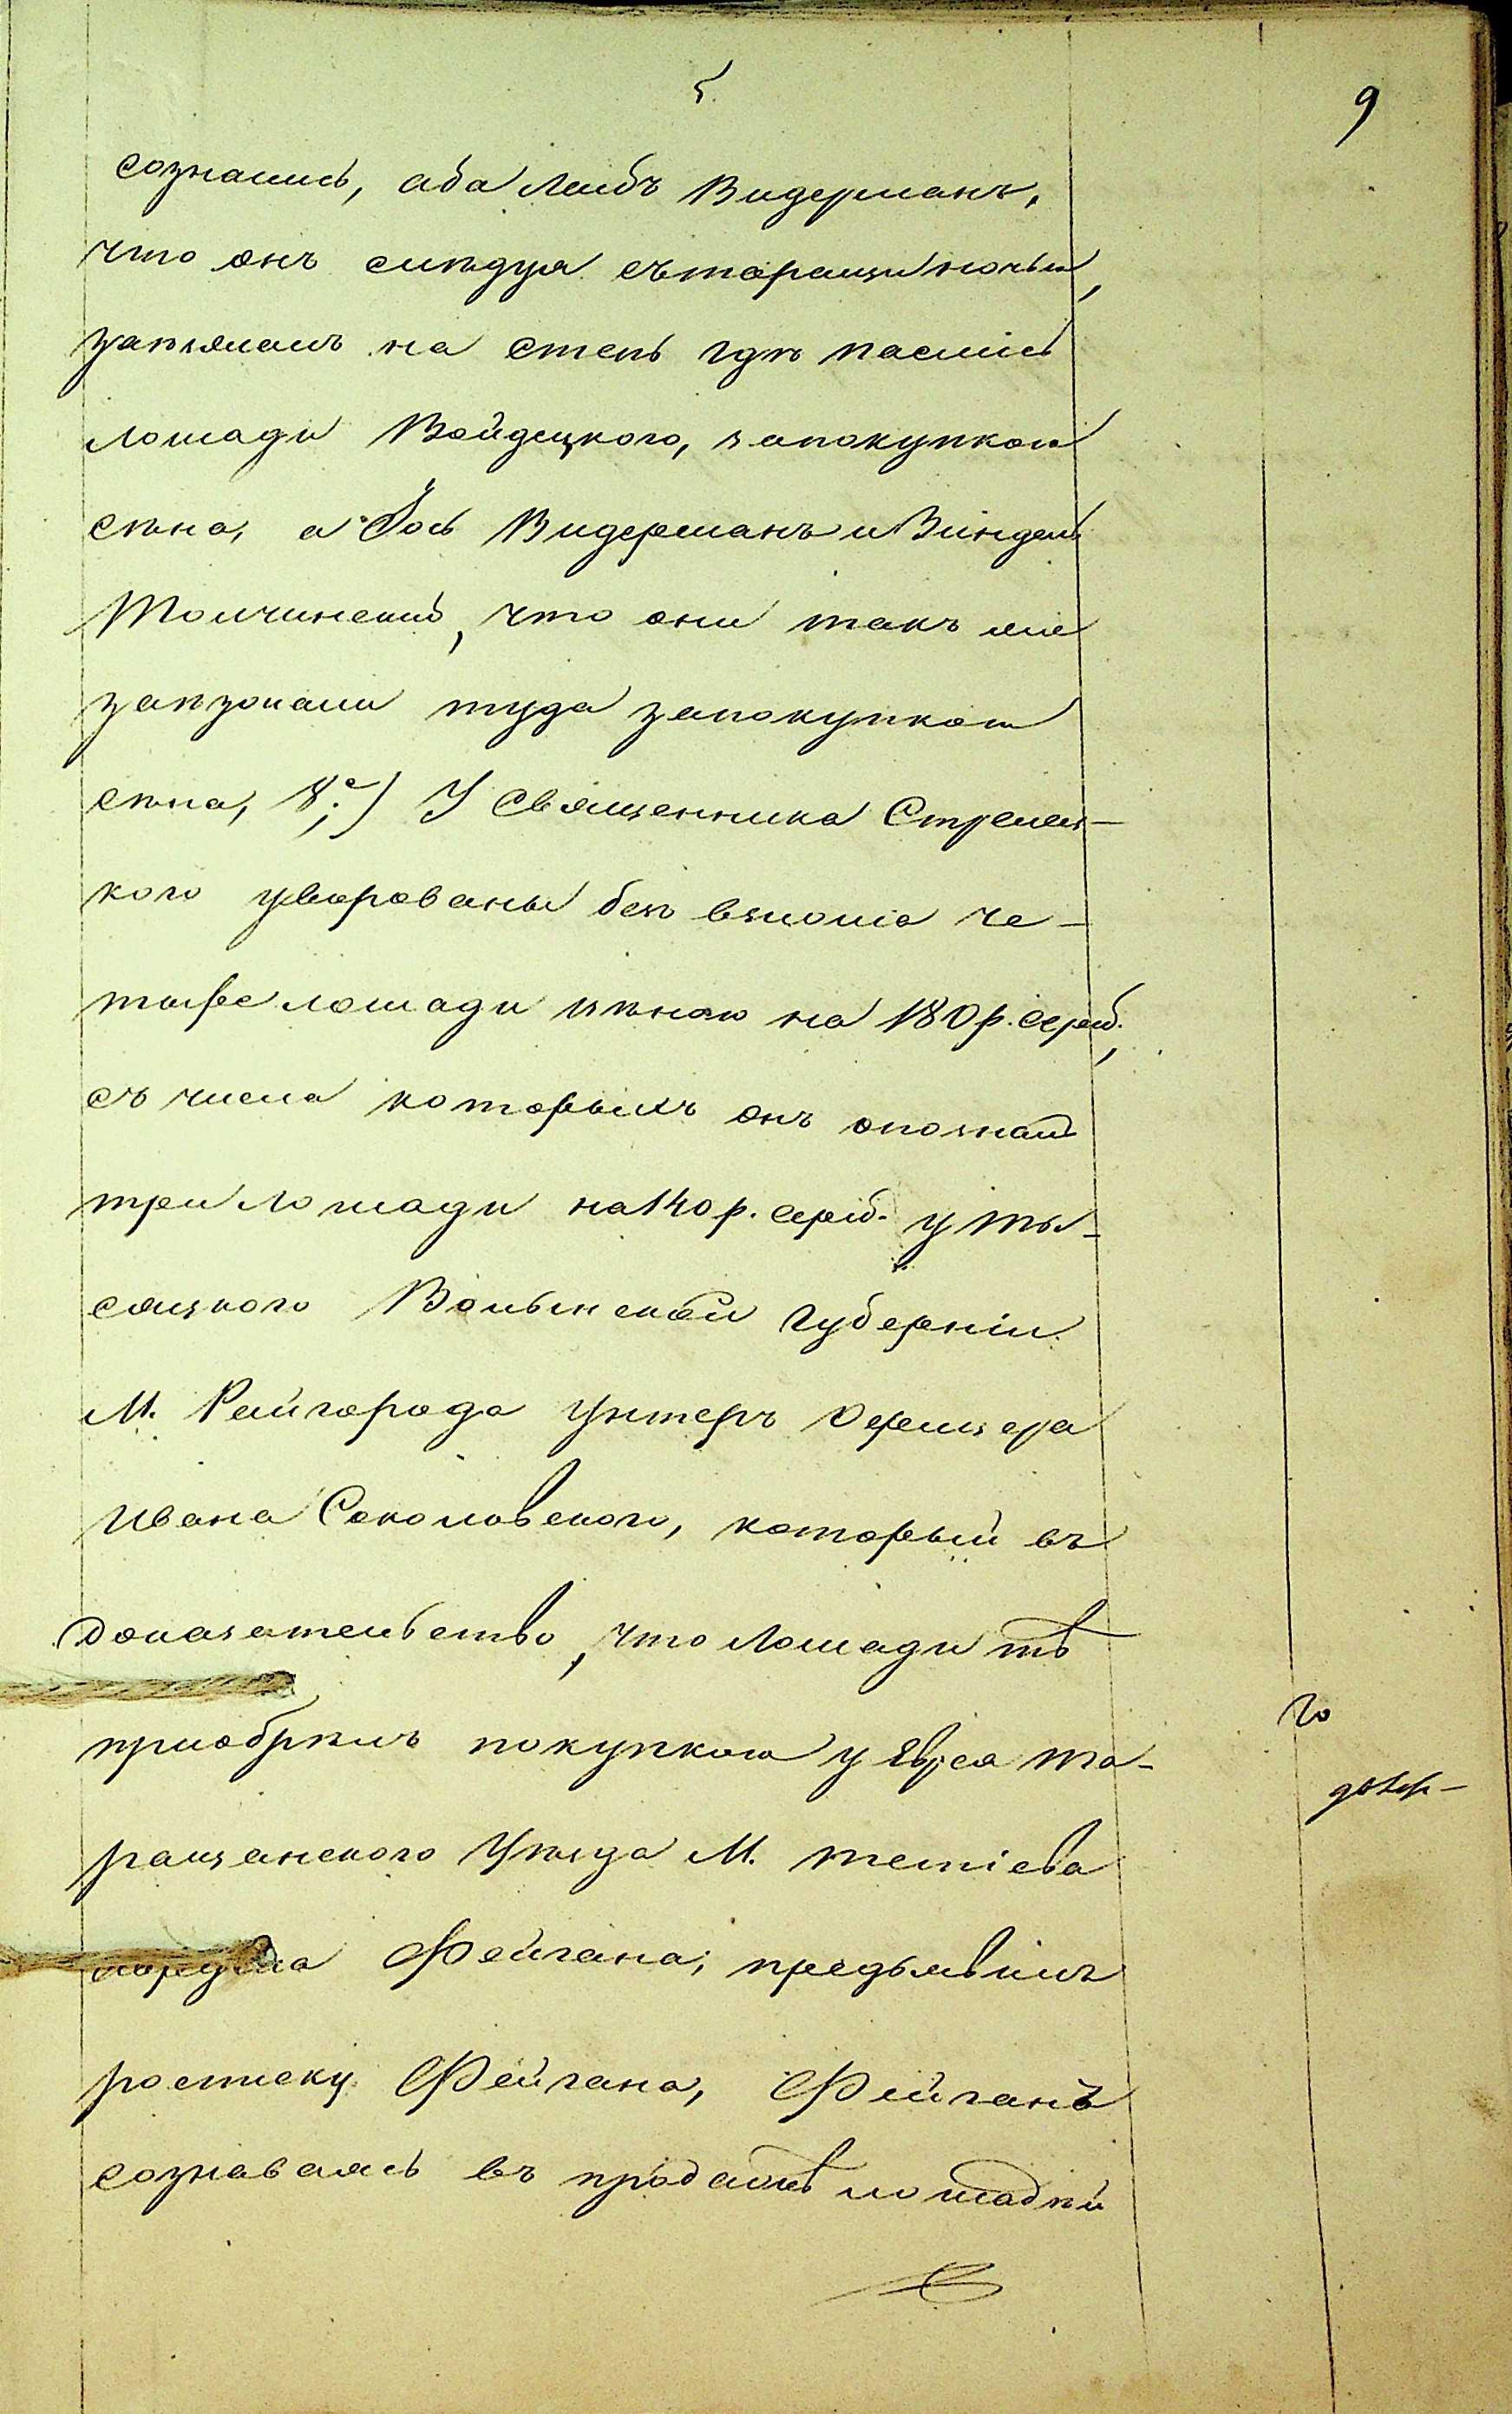 5.
9
сознались, аба Лейбъ Видерманъ,
что онъ слѣдуя съ таращи ночью,
заѣзжалъ на степь гдѣ паслись
лошади Войдецкого, запокупкой
сѣна, а Йось Видерманъ и Зиндель
Толчинскій, что они такъ же
заѣзжали туда запокупкой
сѣна, 8е;) У Священника Стрелец-
кого уворованы безъ взлома че-
тыре лошади цѣною на 180 р. сереб.,
съ числа которыхъ онъ опозналъ
три лошади на 140 р. сереб. у ты-
сяцкого Волынской губерніи
М. Райгорода Унтеръ Офицера
Ивана Соколовского, который въ
доказательство, что лошади тѣ
приобрѣлъ покупкою у Еврея та-
ращанского Уѣзда М. тетіева
Фейгана, предъявилъ
росписку Фейгана, Фейганъ
сознаваясь въ продажѣ лошадѣй
го